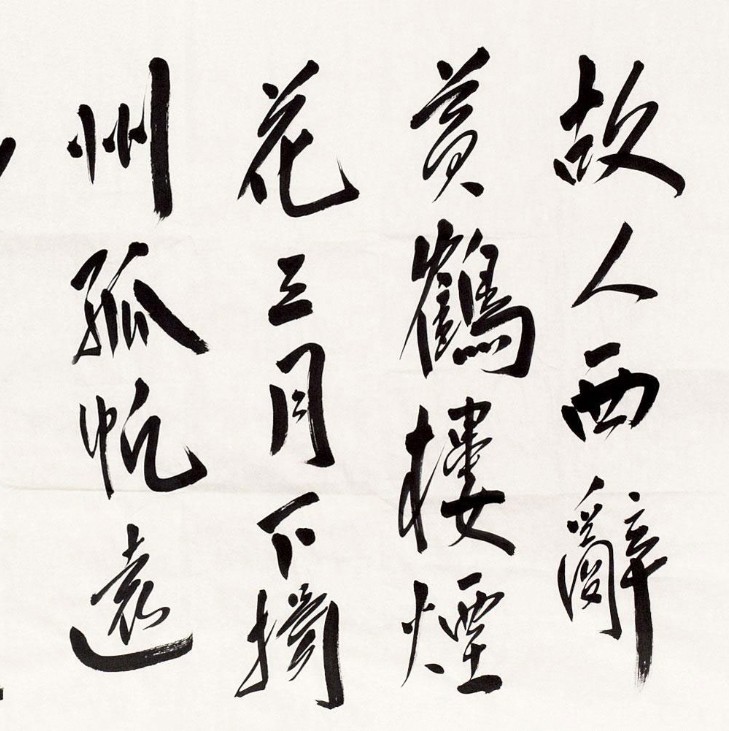 故人西辭
黄鶴樓煙
花三月下揚
州孤帆遠